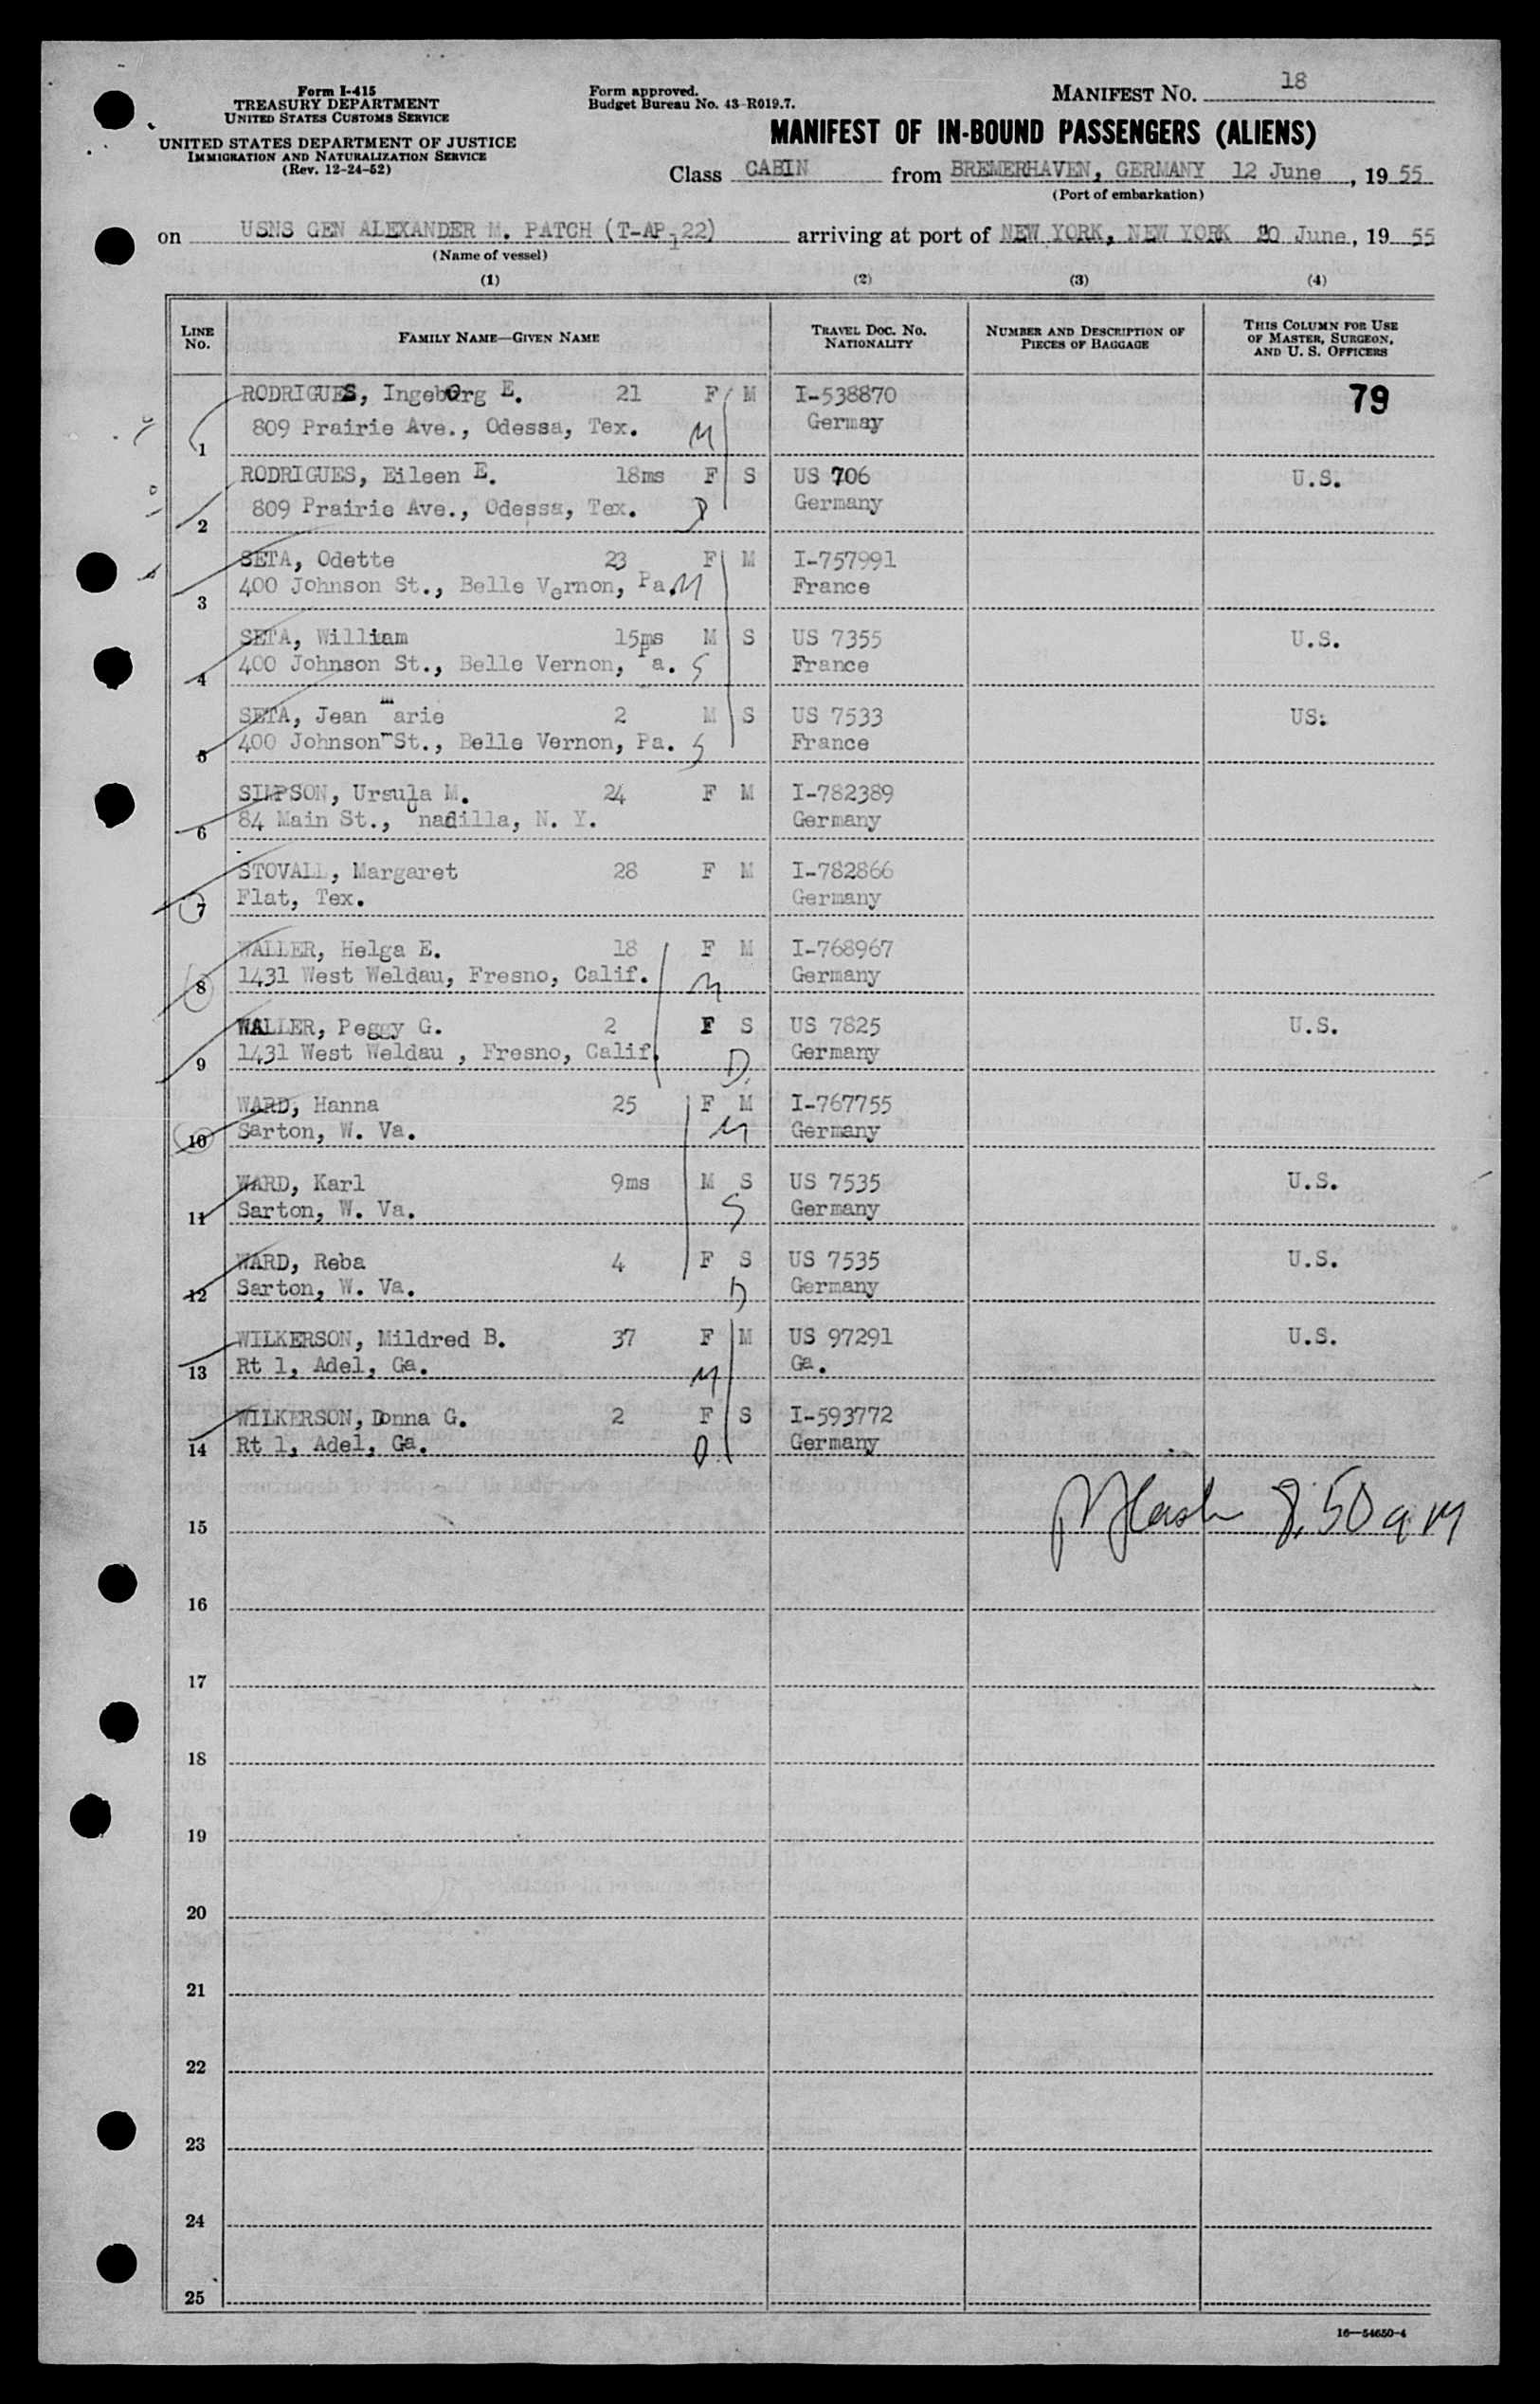 Form I-415
TREASURY DEPARTMENT
UNITED STATES CUSTOMS SERVICE
UNITED STATES DEPARTMENT OF JUSTICE
IMMIGRATION AND NATURALIZATION SERVICE
(Rev. 12-24-52)
Form approved.
Budget Bureau No. 43-R019.7.
MANIFEST NO. 18
MANIFEST OF IN-BOUND PASSENGERS (ALIENS)
Class CABIN from BREMERHAVEN, GERMANY 12 June, 1955
(Port of embarkation)
on USNS GEN ALEXANDER M. PATCH (T-AP-122) arriving at port of NEW YORK, NEW YORK 20 June, 1955
(Name of vessel)
(1) (2) (3) (4)
LINE NO. FAMILY NAME—GIVEN NAME TRAVEL DOC. NO. NATIONALITY NUMBER AND DESCRIPTION OF PIECES OF BAGGAGE THIS COLUMN FOR USE OF MASTER, SURGEON, AND U. S. OFFICERS
RODRIGUES, Ingeborg E. 21 F M I-538870 79
1 809 Prairie Ave., Odessa, Tex. M Germay
RODRIGUES, Eileen E. 18ms F S US 706 U.S.
2 809 Prairie Ave., Odessa, Tex. D Germany
SETA, Odette 23 F M I-757991
3 400 Johnson St., Belle Vernon, Pa. M France
SETA, William 15ms M S US 7355 U.S.
4 400 Johnson St., Belle Vernon, Pa. S France
SETA, Jean marie 2 M S US 7533 US.
5 400 Johnson St., Belle Vernon, Pa. S France
SIMPSON, Ursula M. 24 F M I-782389
6 84 Main St., Unadilla, N. Y. Germany
STOVALL, Margaret 28 F M I-782866
7 Flat, Tex. Germany
WALLER, Helga E. 18 F M I-768967
8 1431 West Weldau, Fresno, Calif. M Germany
WALLER, Peggy G. 2 F S US 7825 U.S.
9 1431 West Weldau , Fresno, Calif. D. Germany
WARD, Hanna 25 F M I-767755
10 Sarton, W. Va. M Germany
WARD, Karl 9ms M S US 7535 U.S.
11 Sarton, W. Va. S Germany
WARD, Reba 4 F S US 7535 U.S.
12 Sarton, W. Va. D Germany
WILKERSON, Mildred B. 37 F M US 97291 U.S.
13 Rt 1, Adel, Ga. M Ga.
WILKERSON, Donna G. 2 F S I-593772
14 Rt 1, Adel, Ga. D. Germany
15 8:50 am
16
17
18
19
20
21
22
23
24
25
16—54650-4